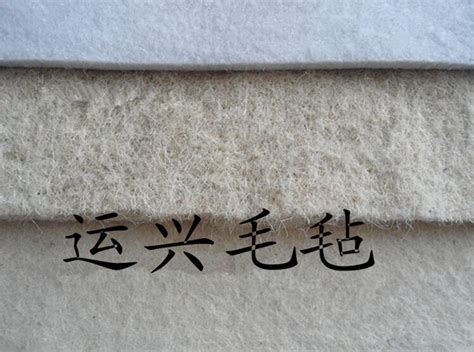 运兴毛毡